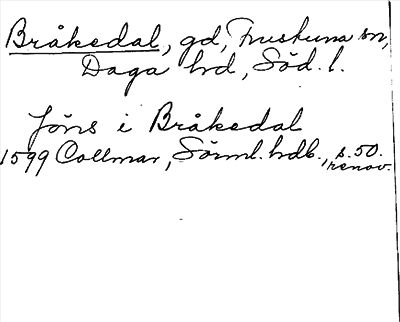 Bråkedal, gd, Frustuna sn,
Daga hd, Söd. l.
Jöns i Bråkedal
1599 Collmar, Sörml. hdb., s. 50.
renov.